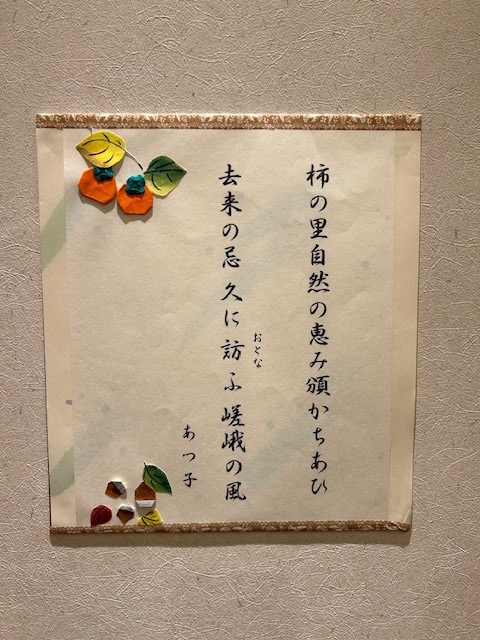 柿の里自然の恵み頒かちあひ
去来の忌久に訪ふ嵯峨の風
おとな
あつ子